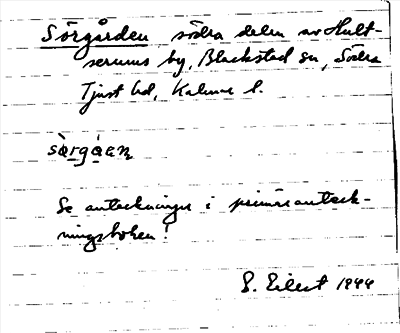 Sörgården södra delen av Hult-
serums by, Blackstad sn, Södra
Tjust hd, Kalmar l.
sö̀rgá̱ən
Se anteckningar i primäranteck-
ningsboken!
S. Eilert 1944